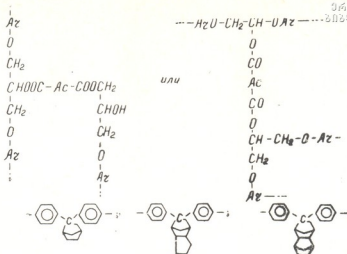 Ar
O
CH₂
CHOOC-Ac-COOCH₂
CH₂ CHOH
O CH₂
Ar O
Ar
или
---ArO-CH₂-CH-OAr---
O
CO
Ac
CO
O
CH-CH₂-O-Ar-
CH₂
O
Ar---
C ; C ; C ;